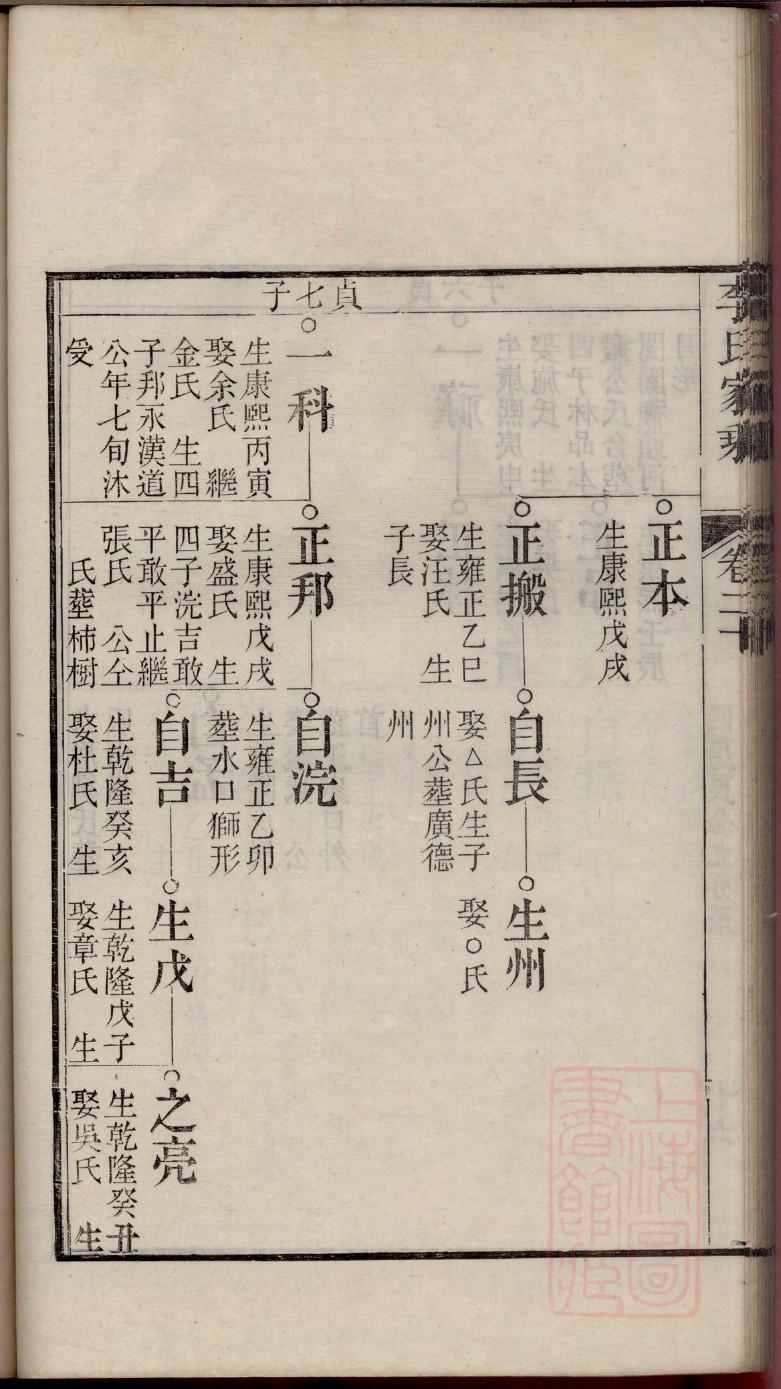 李氏家乘
卷二十
正本
生康熙戊戌
正搬
生雍正乙巳
娶汪氏 生
子長
自長
娶△氏生子
州公塟廣德
州
生州
娶○氏
貞七子
一科
生康熙丙寅
娶余氏 繼
金氏 生四
子邦永漢道
公年七旬沐
受
正邦
生康熙戊戌
娶盛氏 生
四子浣吉敢
平敢平止繼
張氏 公仝
氏塟柿樹
自浣
生雍正乙卯
塟水口獅形
自吉
生乾隆癸亥
娶杜氏 生
生戊
生乾隆戊子
娶章氏 生
之亮
生乾隆癸丑
娶吳氏 生
上海圖
書館藏